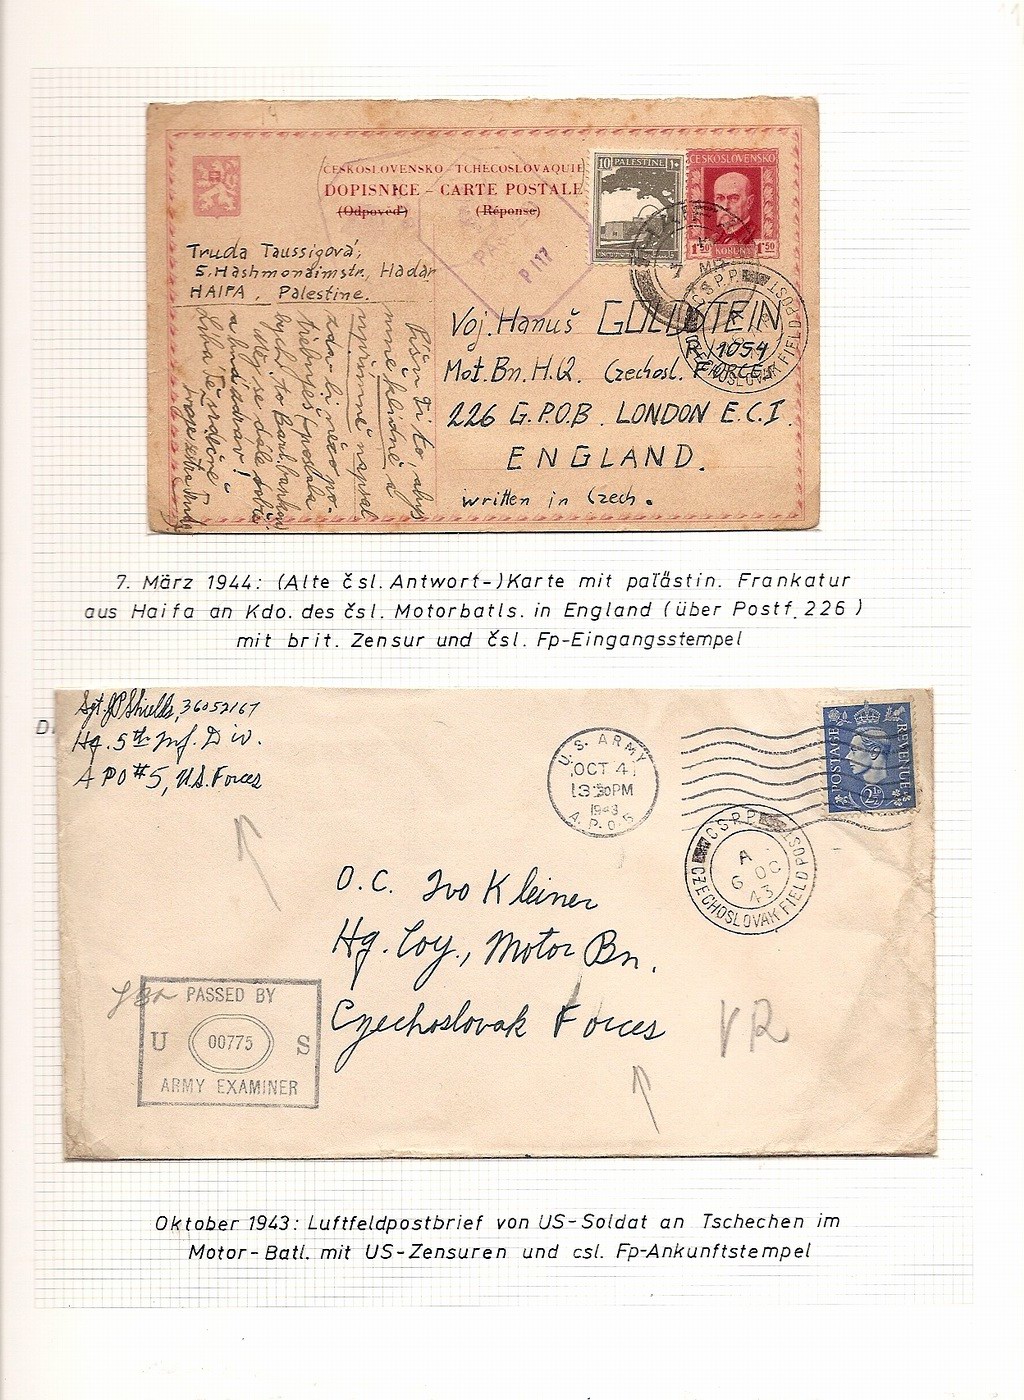 ČESKOSLOVENSKO - TCHÉCOSLOVAQUIE
DOPISNICE - CARTE POSTALE
(Odpověď) (Réponse)
10 PALESTINE
ČESKOSLOVENSKO
1·50 KORUNA 1·50
P 117
Truda Taussigová,
5, Hashmonaimstr, Hadar
HAIFA, Palestine.
Píši Ti to, abys
mne klidně a
upřímně napsal
zda bi něco po-
třebuješ poslala
bych to
Měj se dále dobře
a buď zdráv!
Líbá Tě srdečně
Voj. Hanuš GOLDSTEIN
R/1054
Mot. Bn. H.Q. Czechosl. FORCES
226 G.P.O.B. LONDON E.C.I.
ENGLAND.
written in Czech.
C S P P
CZECHOSLOVAK FIELD POST
7. März 1944: (Alte čsl. Antwort-)Karte mit palästin. Frankatur
aus Haifa an Kdo. des čsl. Motorbatls. in England (über Postf. 226)
mit brit. Zensur und čsl. Fp-Eingangsstempel
D
Sgt. JP Shields, 36052167
Hq. 5th Inf. Div.
APO #5, U.S. Forces
U.S. ARMY
OCT 4
3 30 PM
1943
A.P.O. 5
POSTAGE REVENUE
2½
C S P P
A
6 OC
43
CZECHOSLOVAK FIELD POST
O.C. Ivo Kleiner
Hq. Coy., Motor Bn.
Czechoslovak Forces
VR
PASSED BY
U 00775 S
ARMY EXAMINER
Oktober 1943: Luftfeldpostbrief von US-Soldat an Tschechen im
Motor-Batl. mit US-Zensuren und csl. Fp-Ankunftstempel